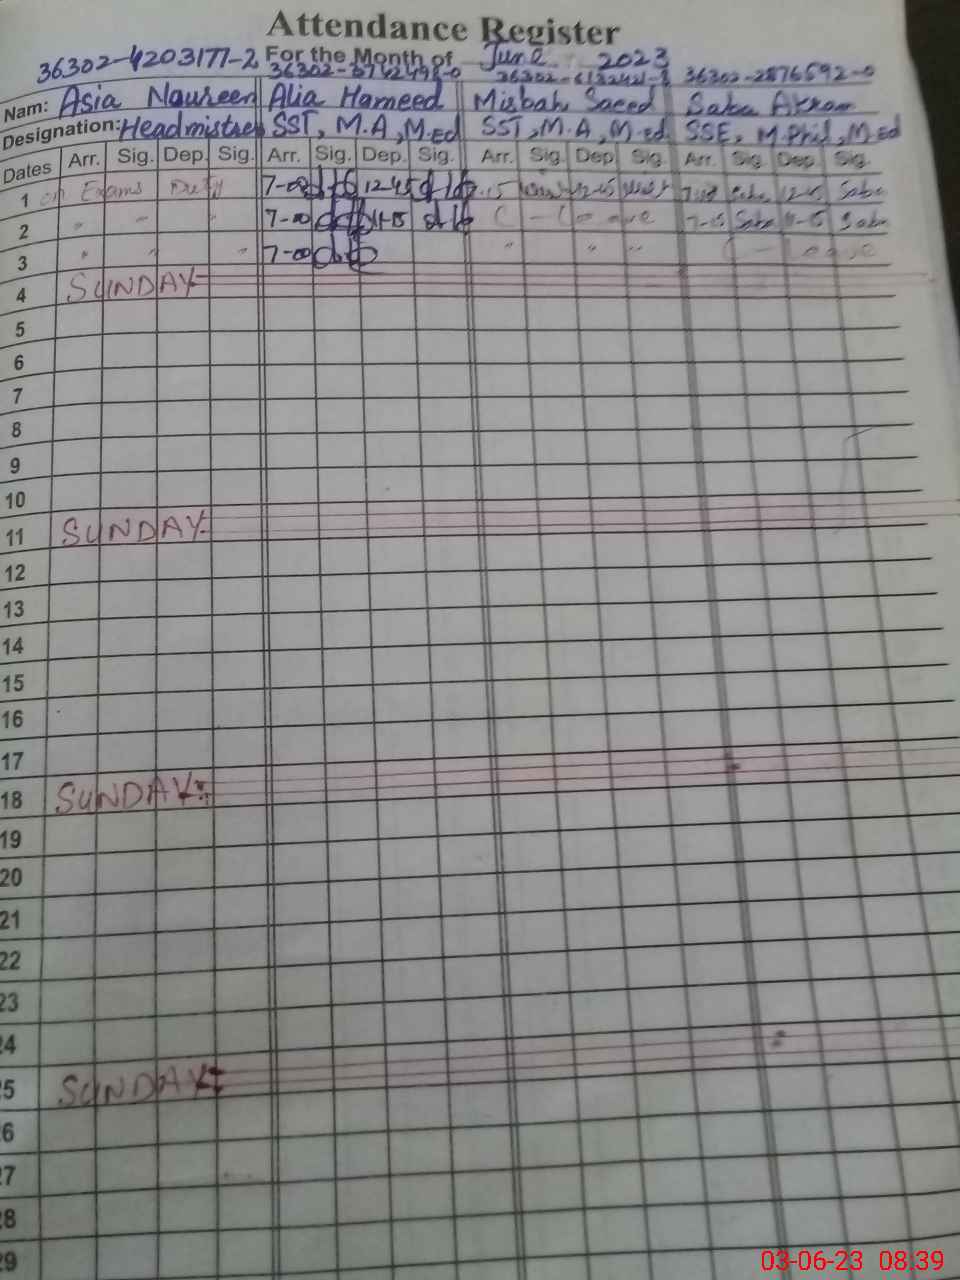 Attendance Register
36302-4203177-2 For the Month of June 2023
36302-2876592-0
Nam: Asia Naureen Alia Hameed Misbah Saeed Saba Akram
Designation: Headmistress SST, M.A, M.Ed SST, M.A, M.ed SSE, M.Phil, M.Ed
Dates Arr. Sig. Dep. Sig. Arr. Sig. Dep. Sig. Arr. Sig. Dep. Sig. Arr. Sig. Dep. Sig.
1 on Exams Duty 7-00 12-45 12-45 Saba 12-45 Saba
2 " " " 7-00 11-15 Leave 7-15 Saba 11-15 Saba
3 " " " 7-00 " " " Leave
4 SUNDAY
5
6
7
8
9
10
11 SUNDAY
12
13
14
15
16
17
18 SUNDAY
19
20
21
22
23
24
25 SUNDAY
26
27
28
29
03-06-23 08:39